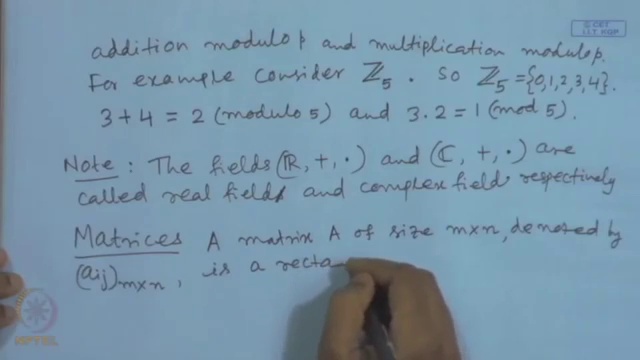 © CET
I.I.T. KGP
addition modulo p and multiplication modulo p.
For example consider ℤ₅. So ℤ₅ = {0,1,2,3,4}.
3+4 = 2 (modulo 5) and 3.2 = 1 (mod 5).
Note : The fields (ℝ, +, ·) and (ℂ, +, ·) are
called real field and complex field respectively
Matrices A matrix A of size m×n, denoted by
(aij)m×n, is a recta
NPTEL